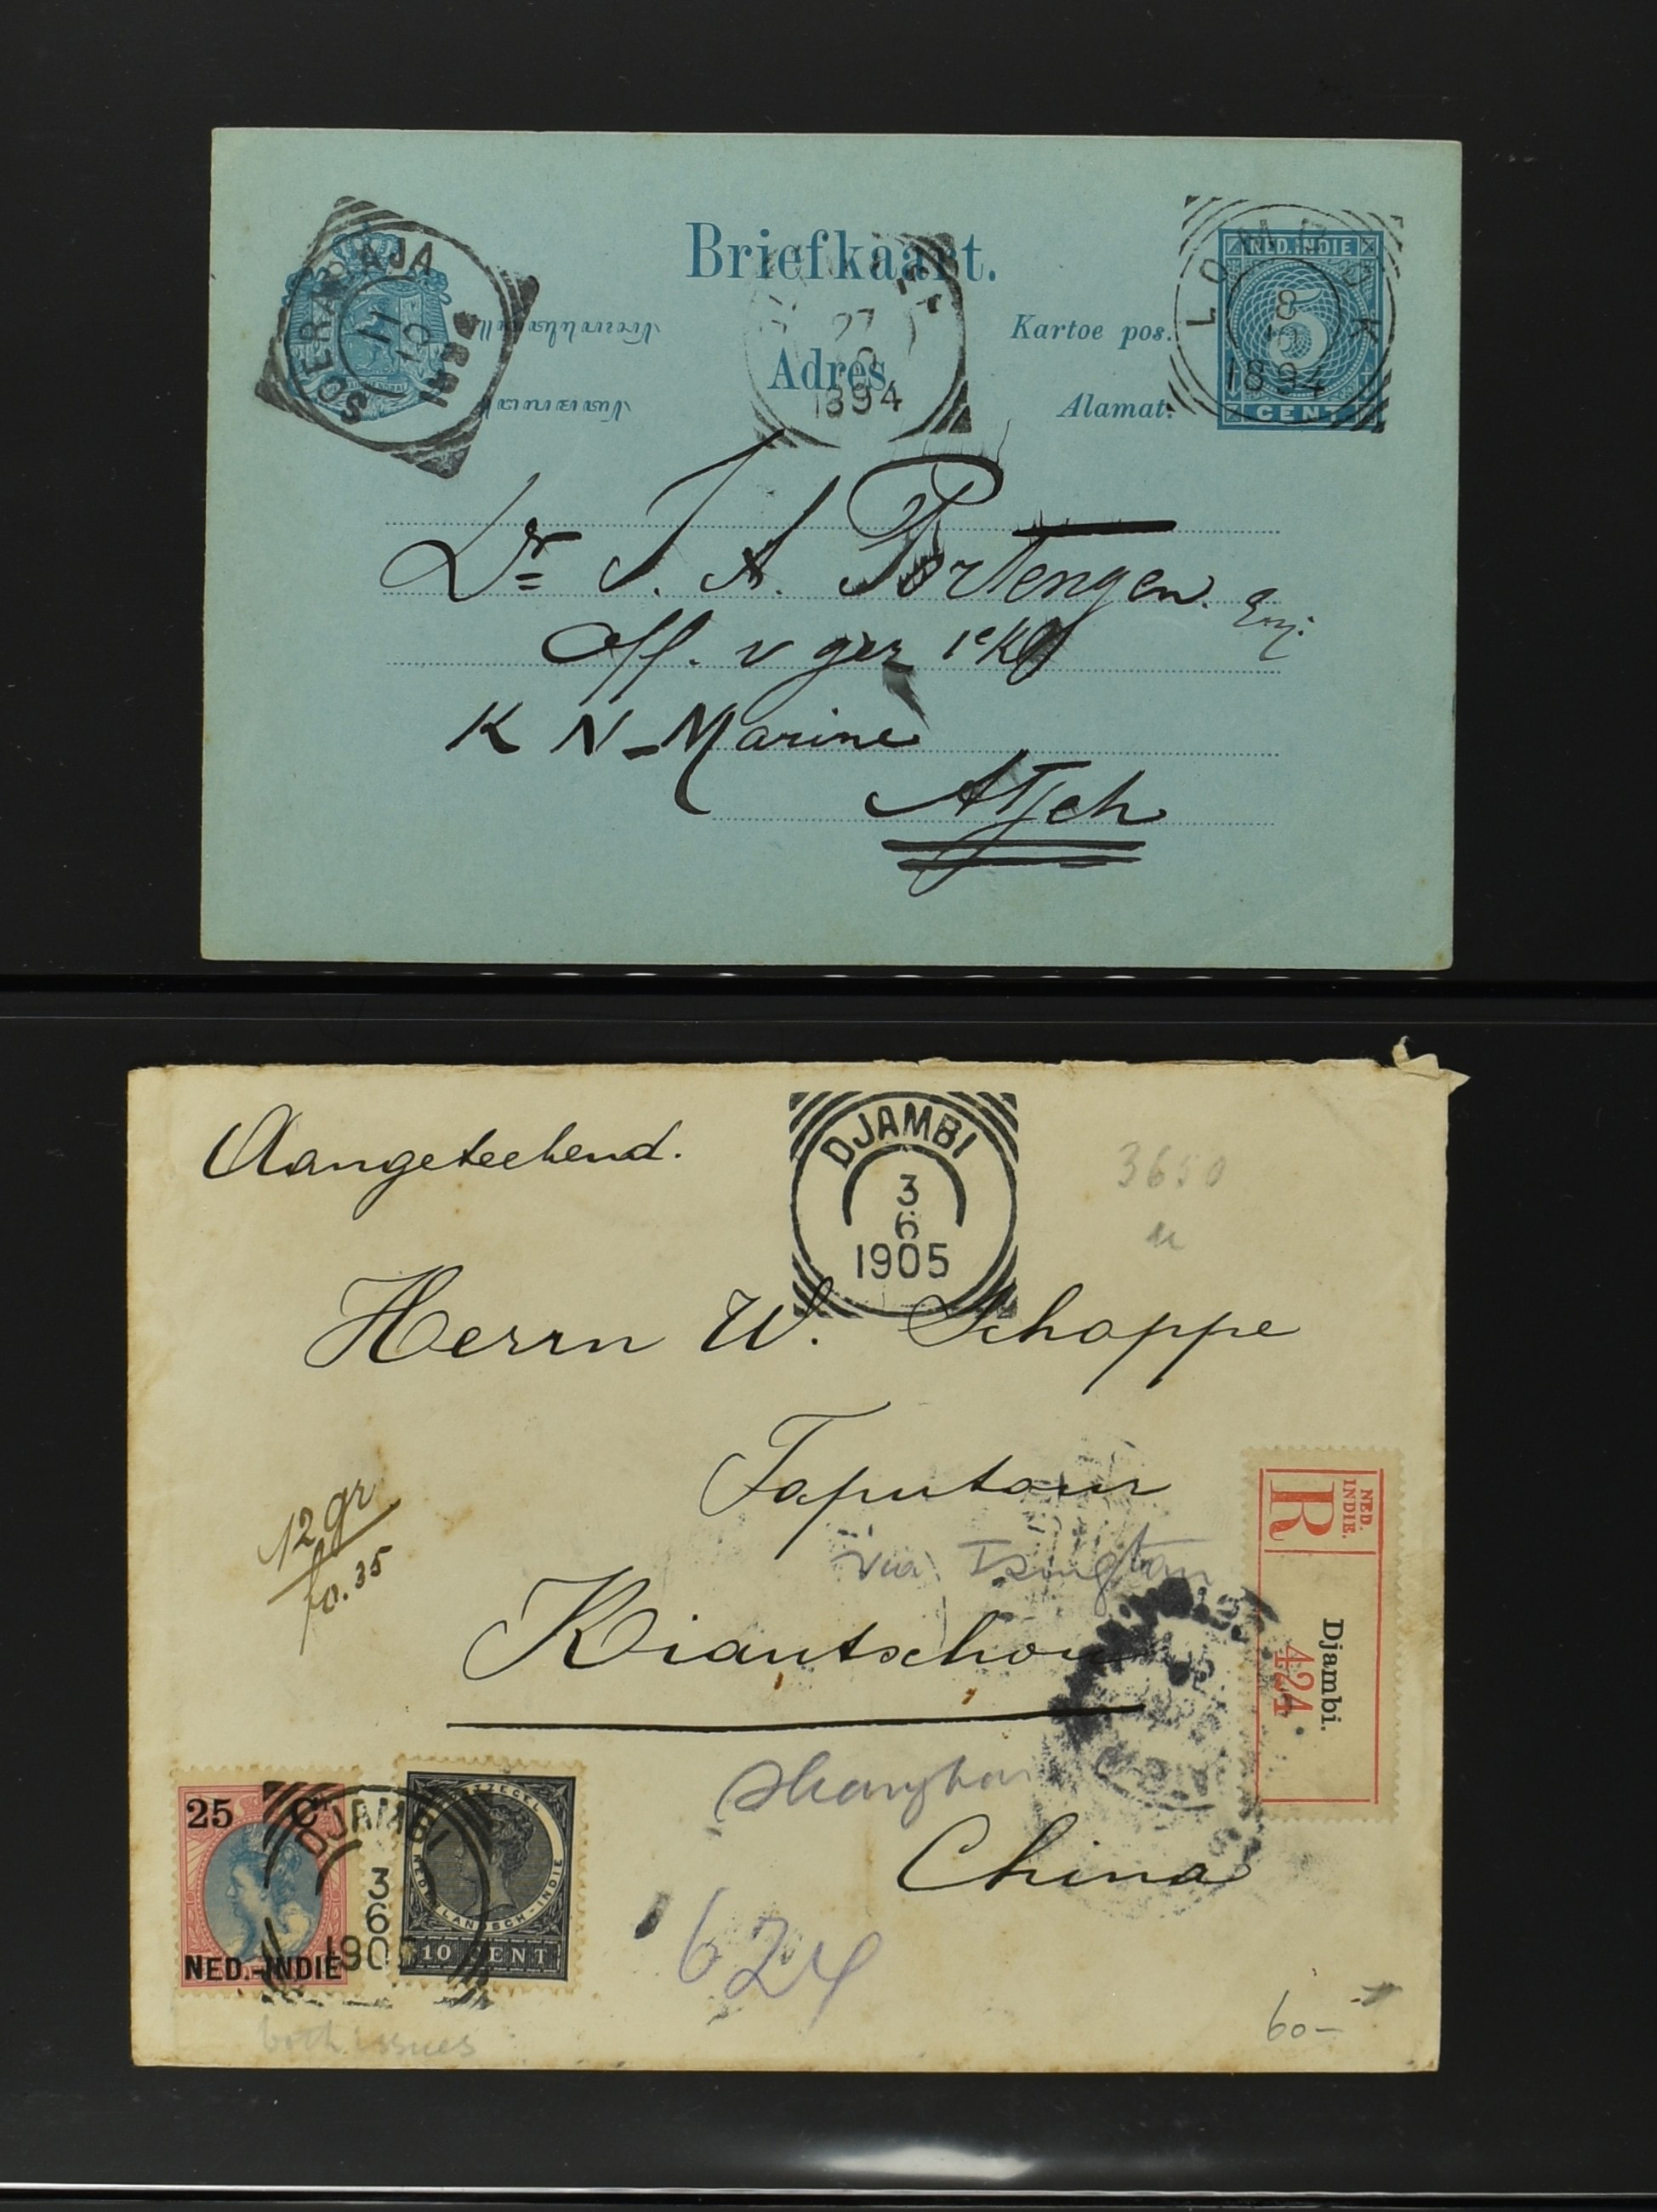 Briefkaart.
SOERABAJA
11
10
1894
27
1894
LOMBOK
8
10
1894
NED. INDIE
5
CENT
Kartoe pos.
Adres
Alamat:
Dr J. A. Portengen
Off. v gez 1e Kl
K N-Marine
Atjeh
Aangeteekend.
DJAMBI
3
6
1905
3650
Herrn W. Schoppe
Taputour
via Tsingtau
12 gr
fo.35
Kiautschou
NED.
INDIE.
R
Djambi.
424
Shanghai
China
25 Ct
NED.-INDIE
DJAMBI
3
6
1905
10 CENT
624
both issues
60-